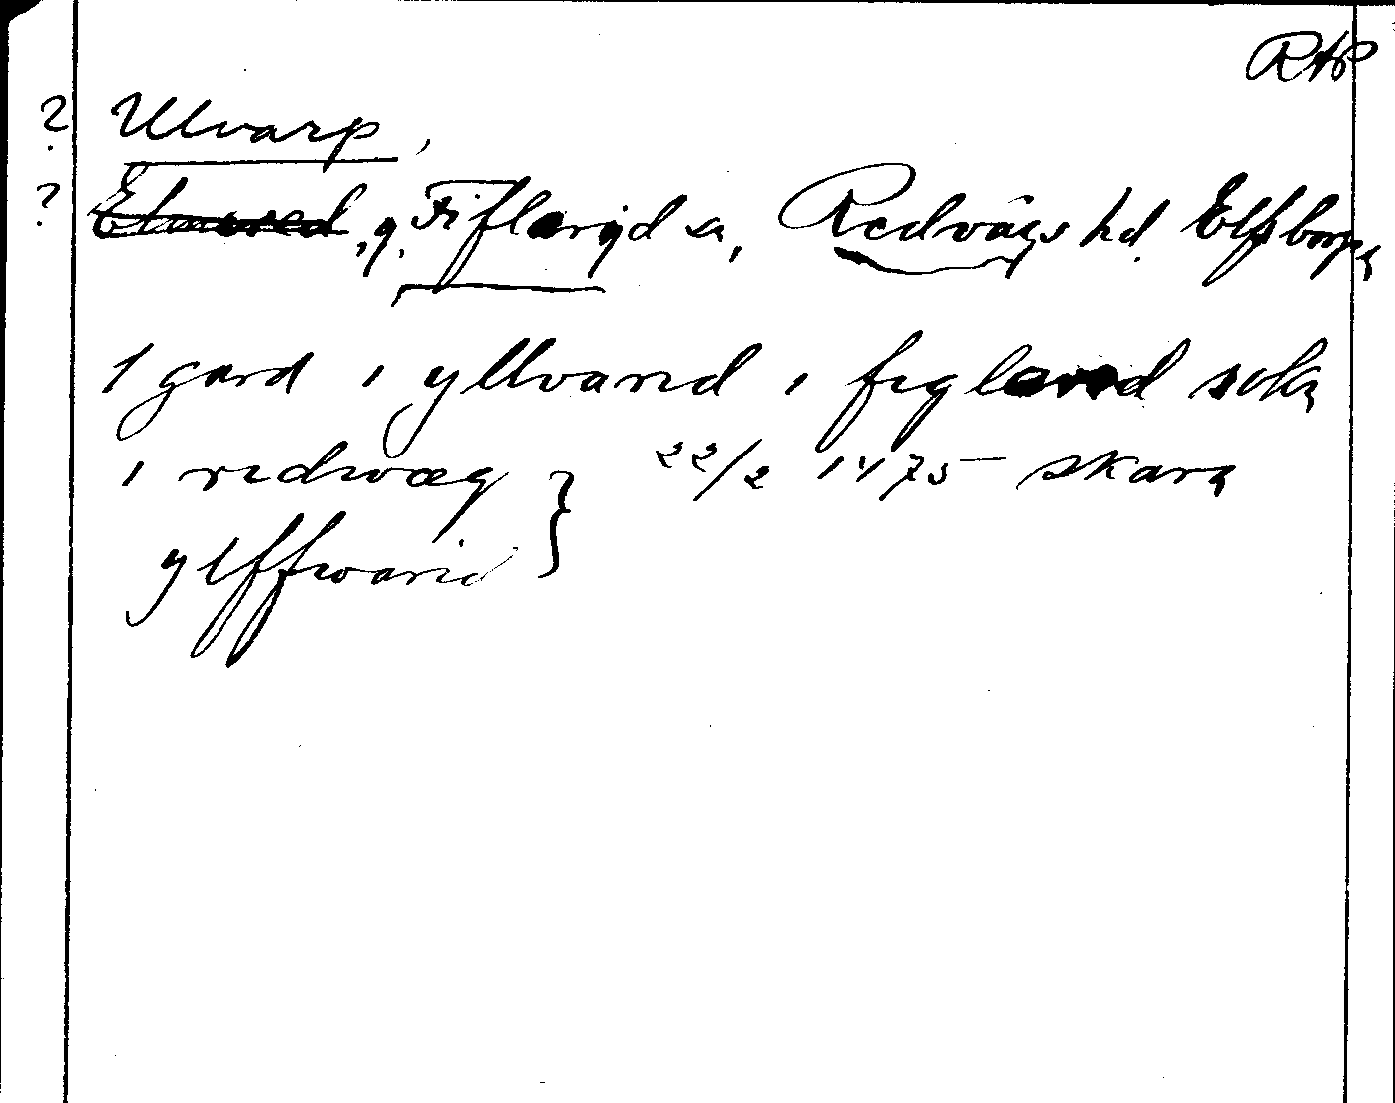 RAP
? Ulvarp,
? Elmered, g. Fiflaryd sn, Redvägs hd. Elfsborgs
1 gard i yllvarid i figlared sokn
i redwæg } 22/2 1475 skara
ylffwarid